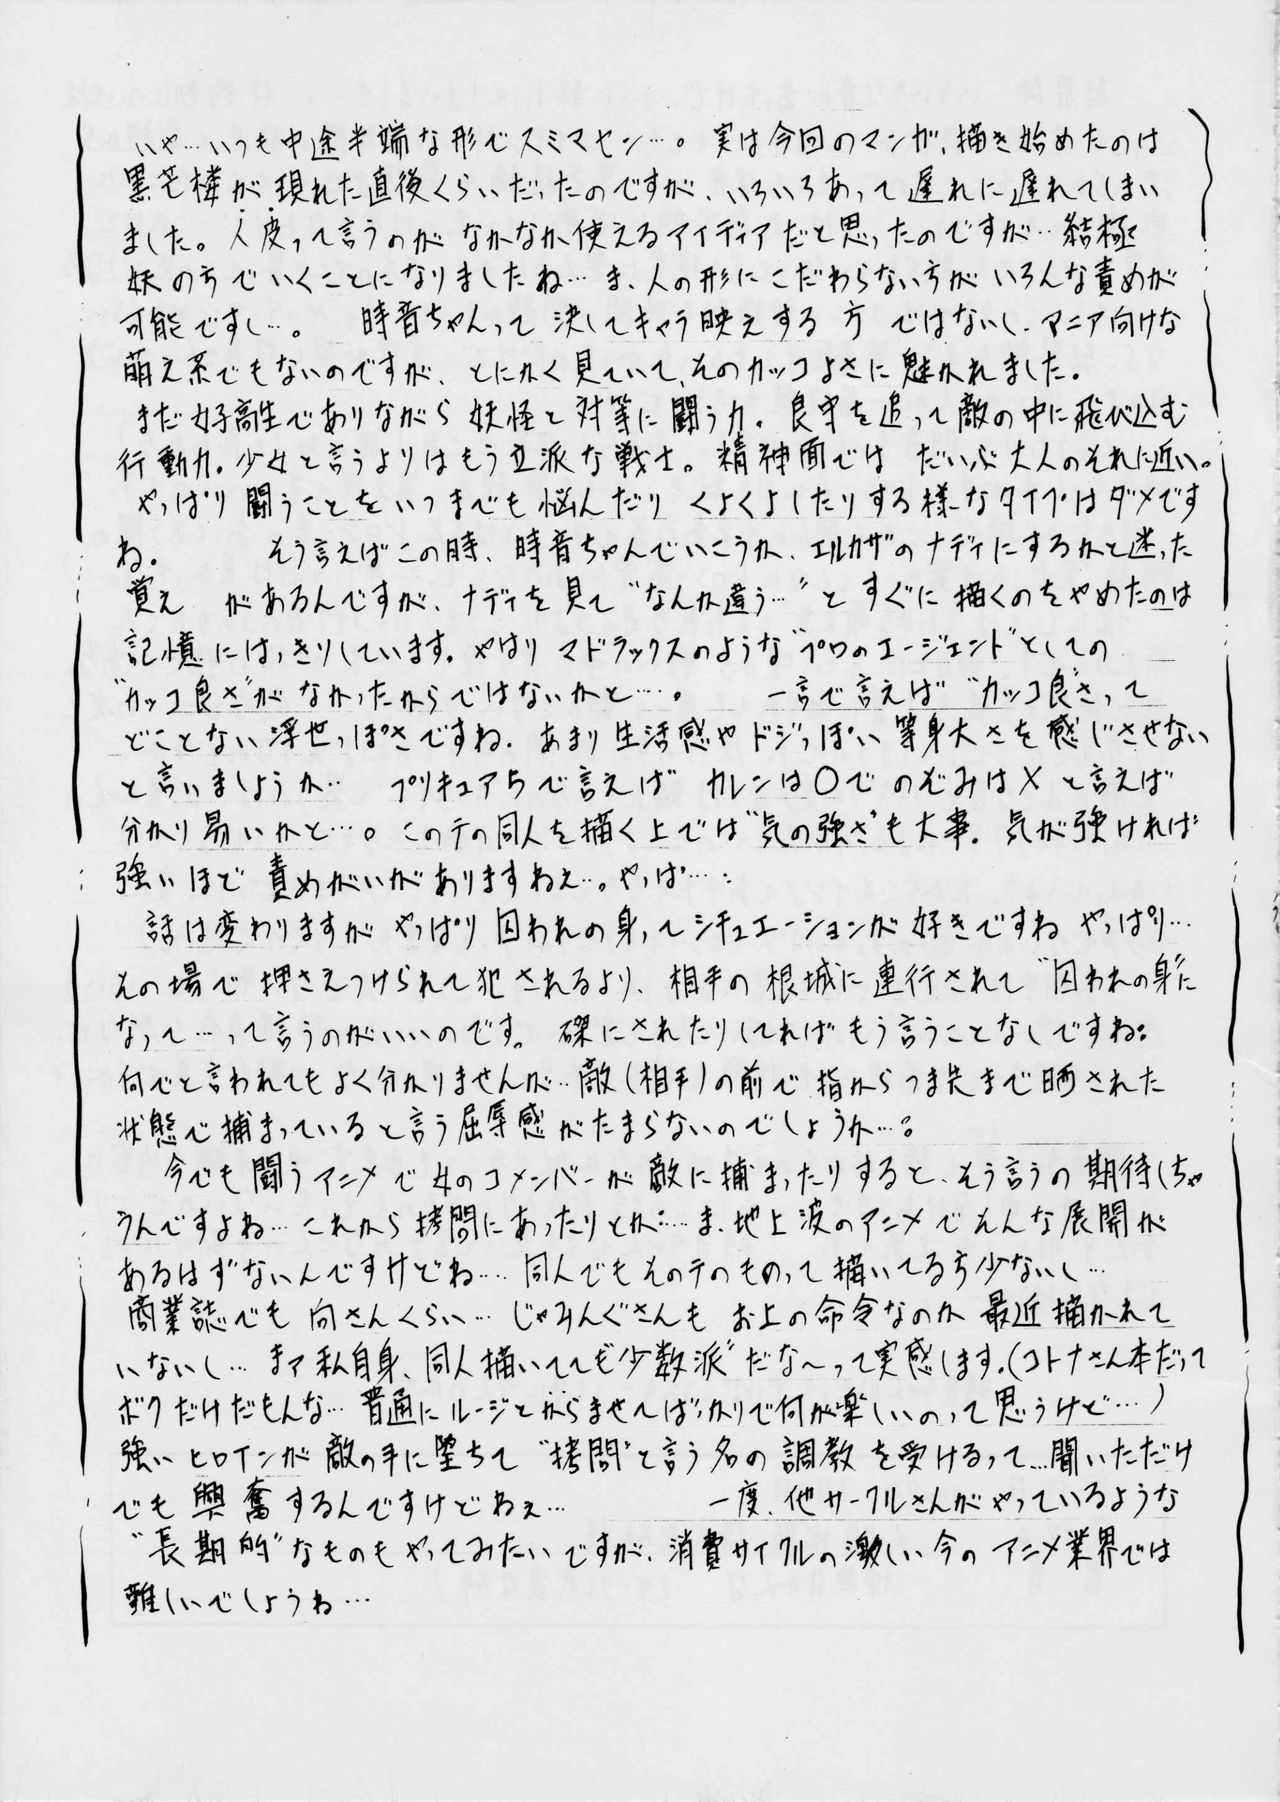 いや…いつも中途半端な形でスミマセン…。実は今回のマンガ、描き始めたのは
黒芒楼が現れた直後くらいだったのですが、いろいろあって遅れに遅れてしまい
ました。人皮って言うのがなかなか使えるアイディアだと思ったのですが…結極
妖の方でいくことになりましたね…ま、人の形にこだわらない方がいろんな責めが
可能ですし…。 時音ちゃんって決してキャラ映えする方ではないし、マニア向けな
萌え系でもないのですが、とにかく見ていて、そのカッコよさに魅かれました。
まだ女子高生でありながら妖怪と対等に闘う力。良守を追って敵の中に飛び込む
行動力。少女と言うよりはもう立派な戦士。精神面ではだいぶ大人のそれに近い。
やっぱり闘うことをいつまでも悩んだりくよくよしたりする様なタイプはダメです
ね。 そう言えばこの時、時音ちゃんでいこうか、エルカザのナディにするかと迷った
覚えがあるんですが、ナディを見て“なんか違う…”とすぐに描くのをやめたのは
記憶にはっきりしています。やはりマドラックスのような“プロのエージェント”としての
“カッコ良さ”がなかったからではないかと…。 一言で言えば“カッコ良さ”って
どことない浮世っぽさですね。あまり生活感やドジっぽい等身大さを感じさせない
と言いましょうか… プリキュア5で言えばカレンは○でのぞみは×と言えば
分かり易いかと…。このテの同人を描く上では“気の強さ”も大事。気が強ければ
強いほど責めがいがありますねぇ…。やっぱ…
話は変わりますがやっぱり囚われの身ってシチュエーションが好きですねやっぱり…
その場で押さえつけられて犯されるより、相手の根城に連行されて“囚われの身”に
なって…って言うのがいいのです。磔にされたりしてればもう言うことなしですね。
何でと言われてもよく分かりませんが…敵(相手)の前で指からつま先まで晒された
状態で捕まっていると言う屈辱感がたまらないのでしょうか…。
今でも闘うアニメで女のコメンバーが敵に捕まったりすると、そう言うの期待しちゃ
うんですよね…これから拷問にあったりとか…ま、地上波のアニメでそんな展開が
あるはずないんですけどね… 同人でもそのテのものって描いてる方少ないし…
商業誌でも向さんくらい… じゃみんぐさんもお上の命令なのか最近描かれて
いないし…まァ私自身、同人描いてても“少数派”だな～って実感します。(コトナさん本だって
ボクだけだもんな…普通にルージとからませてばっかりで何が楽しいのって思うけど…)
強いヒロインが敵の手に堕ちて“拷問”と言う名の調教を受けるって…聞いただけ
でも興奮するんですけどねぇ… 一度、他サークルさんがやっているような
“長期的”なものもやってみたいですが、消費サイクルの激しい今のアニメ業界では
難しいでしょうね…